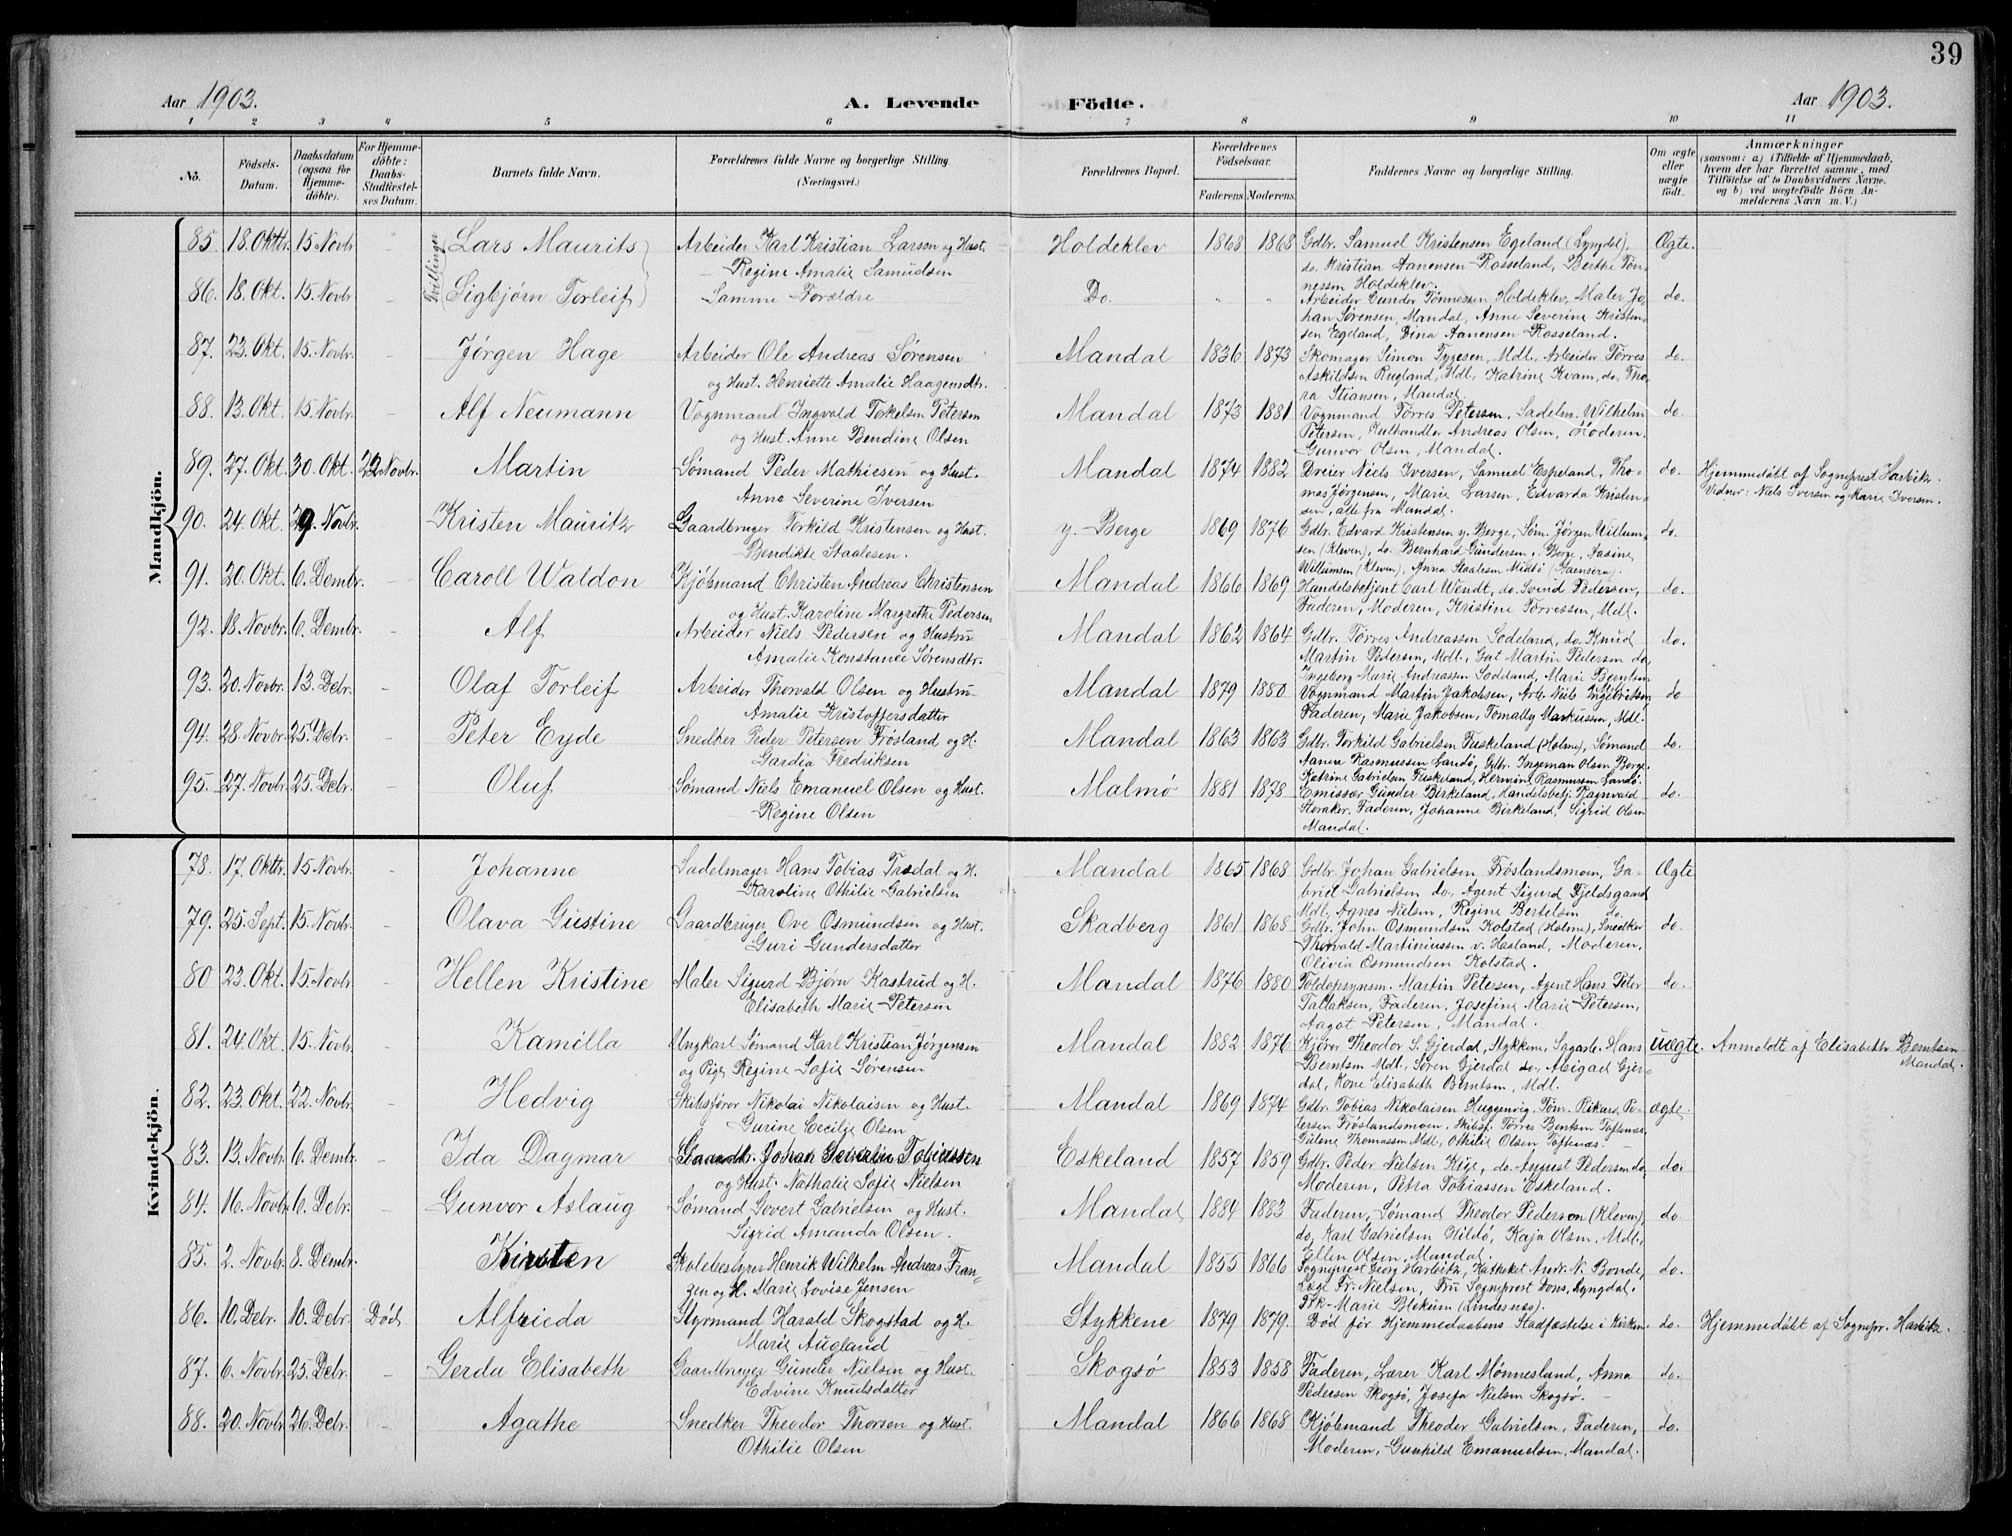 39
Aar 1903. A. Levende Födte. Aar 1903.
1 2 3 4 5 6 7 8 9 10 11
No. Födsels-Datum. Daabsdatum (ogsaa for Hjemmedöbte). For Hjemmedöbte: Daabs-Stadfæstelses Datum. Barnets fulde Navn. Forældrenes fulde Navne og borgerlige Stilling. (Næringsvei.) Forældrenes Bopæl. Forældrenes Födselsaar. Faderens Moderens Faddernes Navne og borgerlige Stilling. Om ægte eller uægte födt. Anmærkninger (saasom: a) i Tilfælde af Hjemmedaab, hvem der har forrettet samme, med Tilföielse af to Daabsvidners Navne, og b) ved uægtefödte Börn Anmelderens Navn m. V.)
Mandkjön.
Tvillinger
85. 18. Oktbr. 15 Novbr. - Lars Maurits Arbeider Karl Kristian Larsen og Hust. Holdeklev 1868 1868 Gdbr. Samuel Kristensen Egeland (Lyngdal), Ægte.
Regine Amalie Samuelsen do. Kristian Aanensen Rosseland, Berthe Tön-
86. 18. Okt. 15 Novbr. - Sigbjørn Torleif Samme Forældre Do. " " nessen Holdeklev.
Arbeider Gunder Tønnessen Holdeklev, Maler Jo- do.
han Sørensen, Mandal, Anne Severine Kristen-
sen Egeland, Dina Aanensen Rosseland.
87. 23. Okt. 15. Novbr. - Jørgen Hage Arbeider Ole Andreas Sørensen Mandal 1836 1873 Skomager Simon Tygesen, Mdl., Arbeider Tørres do.
og Hust. Henriette Amalie Haagensdtr. Askildsen Rugland, Mdl, Katrine Kvam, do, Tho-
ra Stiansen, Mandal.
88. 13. Okt. 15. Novbr. - Alf Neumann Vognmand Ingvald Torkelsen Petersen Mandal 1873 1881 Vognmand Tørres Petersen, Sadelm. Wilhelm do.
og Hust. Anne Bendine Olsen Petersen, Kulhandler Andreas Olsen, Moderen.
Gunvor Olsen, Mandal.
89. 27. Okt. 30. Okt. 22 Novbr. Martin Sømand Peder Mathiesen og Hust. Mandal 1874 1882 Dreier Niels Iversen, Samuel Espeland, Tho- do. Hjemmedøbt af Sogneprest Harbitz.
Anna Severine Iversen mas Jørgensen, Marie Larsen, Edvarda Kristen- Vidner: Niels Iversen og Marie Iversen.
sen, alle fra Mandal.
90. 24. Okt. 29. Novbr. - Kristen Mauritz Gaardbruger Torkild Kristensen og Hust. y. Berge 1869 1876 Gdbr. Edvard Kristensen y. Berge, Søm. Jørgen Willum- do.
Bendikte Staalesen. sen (Kleven), do. Bernhard Gundersen, Berge, Aasine
Willumsen (Kleven), Anna Staalesen
91. 20. Okt. 6. Dembr. - Caroll Waldon Kjøbmand Christen Andreas Christensen Mandal 1866 1869 Handelsbetjent Carl Wendt, do. Svend Pedersen, do.
og Hust. Karoline Margrethe Pedersen Faderen, Moderen, Kristine Tørressen, Mdl.
92. 18. Novbr. 6. Dembr. - Alf Arbeider Niels Pedersen og Hustru Mandal 1862 1864 Gdbr. Tørres Andreassen Sodeland, do. Knud do.
Amalie Konstance Sørensdtr. Martin Pedersen, Mdl., Gat Martin Pedersen do,
Ingeborg Marie Andreassen Sodeland, Marie Berntsen
93. 20. Novbr. 13. Debr. - Olaf Torleif Arbeider Thorvald Olsen og Hustru Mandal 1879 1880 Vognmand Martin Jakobsen, Arb. Niels Ingebriktsen, do
Amalie Kristoffersdatter Faderen, Marie Jakobsen, Tomally Markussen, Mdl.
94. 28. Novbr. 25. Debr. - Peter Eyde Snedker Peder Petersen Frøsland og H. Mandal 1863 1863 Gdbr. Torkild Gabrielsen Fuskeland (Holme), Sømand do.
Gardia Fredriksen Aanen Rasmussen Sandø, Gdbr. Ingeman Olsen Berge,
Katrine Gabrielsen Fuskeland, Hermine Rasmussen Sandø.
95. 27. Novbr. 25. Debr. - Oluf Sømand Niels Emanuel Olsen og Hust. Malmø 1881 1878 Emissær Gunder Birkeland, Handelsbetj. Ragnvald do.
Regine Olsen Storaker, Faderen, Johanne Birkeland, Sigrid Olsen
Mandal.
Kvindekjön.
78. 17. Oktbr. 15 Novbr. - Johanne Sadelmager Hans Tobias Trædal og H. Mandal 1865 1868 Gdbr. Johan Gabrielsen Frøslandsmoen, Ga- Ægte
Karoline Othilie Gabrielsen briel Gabrielsen do., Agent Sigurd Fjeldsgaard
Mdl, Agnes Nielsen, Regine Bertelsen do.
79. 25. Sept. 15. Novbr. - Olava Gustine Gaardbruger Ove Osmundsen og Hust. Skadberg 1861 1868 Gdbr. John Osmundsen Kolstad (Holme), Snedker do.
Guri Gundersdatter Thorvald Martiniussen v. Hesland, Moderen,
Olivia Osmundsen Kolstad.
80 23. Okt. 15. Novbr. - Hellen Kristine Maler Sigurd Bjørn Kastrud og H. Mandal 1876 1880 Toldopsynsm. Martin Petersen, Agent Hans Peter do.
Elisabeth Marie Petersen Tallaksen, Faderen, Josefine Marie Petersen,
Aagot Petersen, Mandal.
81. 24. Okt. 15. Novbr. - Kamilla Ungkarl Sømand Karl Kristian Jørgensen Mandal 1882 1876 Kjører Theodor S. Gjerdal, Stykkene, Sagarb. Hans uægte. Anmeldt af Elisabeth Berntsen
og Pige Regine Sofie Sørensen Berntsen Mdl., Søren Gjerdal do, Abigael Gjer- Mandal.
dal, Kone Elisabeth Berntsen, Mdl.
82. 23. Okt. 22. Novbr. - Hedvig Skibsfører Nikolai Nikolaisen og Hust. Mandal 1869 1874 Gdbr. Tobias Nikolaisen Huggenvig, Tøm. Rikard Pe- ægte.
Gurine Cecilie Olsen tersen Frøslandsmoen, Skibsf. Tørres Bentsen Toftenæs,
Gulene Thomassen Mdl, Othilie Olsen Toftenæs.
83. 13. Novbr. 6. Dembr. - Ida Dagmar Gaardb. Johan Severin Tobiassen Eskeland 1857 1859 Gdbr. Peder Nielsen Kige, do. August Pedersen do, do.
og Hust. Nathalie Sofie Nielsen Moderen, Petra Tobiassen Eskeland.
84. 16. Novbr. 6. Debr. - Gunvor Aslaug Sømand Govert Gabrielsen og Hust. Mandal 1884 1883 Faderen, Sømand Theodor Pedersen (Kleven), do.
Sigrid Amanda Olsen. do, Karl Gabrielsen Gildø, Kaja Olsen, Mdl,
Ellen Olsen, Mandal.
85. 2. Novbr. 8. Dembr. - Kirsten Skolebestyrer Henrik Wilhelm Andreas Fran- Mandal 1855 1866 Sogneprest Georg Harbitz, Katteket Ank. N. Bonde, do.
zen og H. Marie Lovise Jensen Læge Fr. Nielsen, Fru Sogneprest Dons, Lyngdal.
Frk. Marie Blekum (Lindesnæs).
86. 10. Debr. 10. Debr. Død Alfrieda Styrmand Harald Skogstad og H. Stykkene 1879 1879. Død før Hjemmedaabens Stadfæstelse i Kirken. do. Hjemmedøbt af Sognepr. Harbitz.
Marie Augland
87. 6. Novbr. 25. Debr. - Gerda Elisabeth Gaardbruger Gunder Nielsen og Hust. Skogsø 1853 1858 Faderen, Lærer Karl Mønnesland, Anna do.
Edvine Knudsdatter Pedersen Skogsø, Josefa Nielsen Skogsø.
88. 20. Novbr. 26. Debr. - Agathe Snedker Theodor Thorsen og Hust. Mandal 1866 1868 Kjøbmand Theodor Gabrielsen, Faderen, do.
Othilie Olsen Moderen, Gunhild Emanuelsen, Mandal.